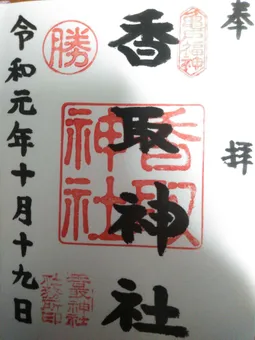 奉拝
亀戸福神
香取神社
香取神社
勝
令和元年十月十九日